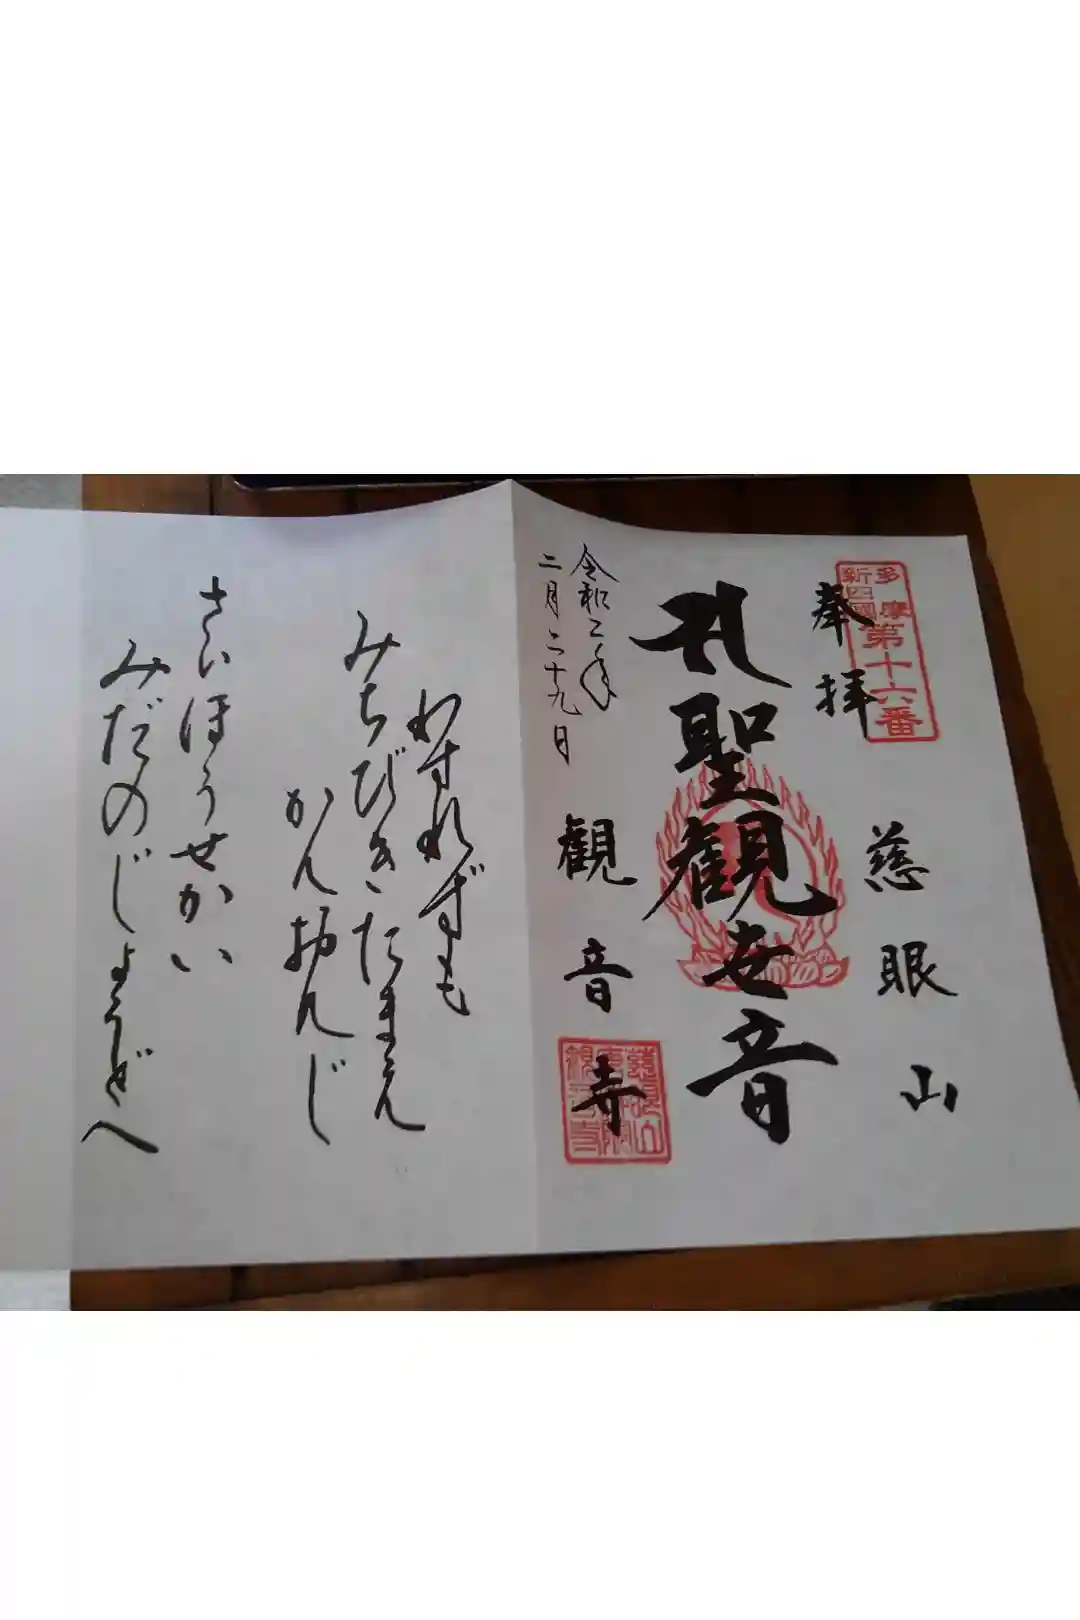 多摩
新四國
第十六番
奉拝
慈眼山
聖観世音
令和二年
二月二十九日
観音寺
わすれずも
みちびきたまえ
かんおんじ
さいほうせかい
みだのじょうどへ